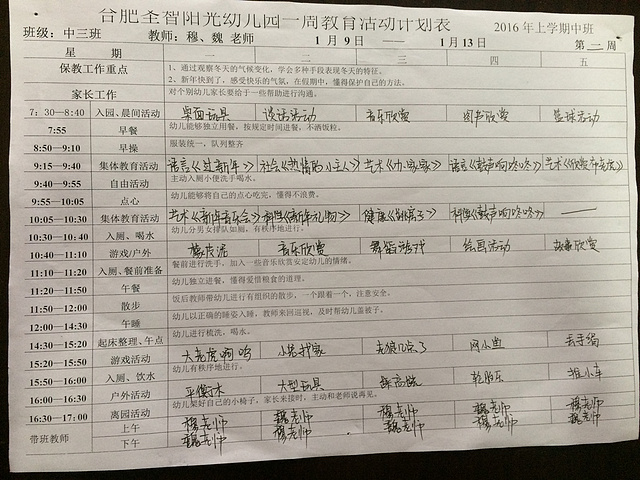 合肥圣智阳光幼儿园一周教育活动计划表
班级：中三班 教师：穆、魏 老师 1 月 9 日 —— 1 月 13 日 2016 年上学期中班 第 二 周
星 期 一 二 三 四 五
保教工作重点 1、通过观察冬天的气候变化，学会多种手段表现冬天的特征。
2、新年快到了，感受快乐的气氛，在假期中，懂得保护自己的方法。
家长工作 对个别幼儿家长要给于一些帮助进行沟通。
7：30—8:40 入园、晨间活动 桌面玩具 谈话活动 音乐欣赏 图书欣赏 篮球活动
7:55 早餐 幼儿能够独立用餐，按规定时间进餐，不洒饭粒。
8:50—9:10 早操 服装统一，队列整齐
9:15—9:40 集体教育活动 语言《过新年》 社会《热情的小主人》 艺术《小家家》 语言《鼓声响咚咚》
9:40—9:55 自由活动 主动入厕小便洗手喝水。
9:55—10:05 点心 幼儿能够将自己的点心吃完，懂得不浪费。
10:05—10:30 集体教育活动 艺术《新年音乐会》 科学《新年礼物》 健康 科学《鼓声响咚咚》 ——
10:30—10:40 入厕、喝水 幼儿分男女排队如厕，有秩序地进行。
10:40—11:10 游戏/户外 音乐欣赏 绘画活动 故事欣赏
11:10—11:20 入厕、餐前准备 餐前进行洗手，加入一些音乐欣赏安定幼儿的情绪。
11:20—11:50 午餐 幼儿独立进餐，懂得爱惜粮食的道理。
11:50—12:00 散步 饭后教师带幼儿进行有组织的散步，一个跟着一个，注意安全。
12:00—14:30 午睡 幼儿以正确的睡姿入睡，教师来回巡视，及时帮幼儿盖被子。
14:30—15:20 起床整理、午点 幼儿进行梳洗、喝水。
15:20—15:50 游戏活动 大老虎 小兔找家 老狼几点了 网小鱼 丢手绢
15:50—16:00 入厕、饮水 幼儿有秩序地进行。
16:00—16:30 户外活动 平衡木 大型玩具 跳高 推小车
16:30—17:00 离园活动 幼儿架好自己的小椅子，家长来接时，主动和老师说再见。
带班教师 上午 穆老师 魏老师 穆老师 魏老师 穆老师
下午 魏老师 穆老师 魏老师 穆老师 魏老师